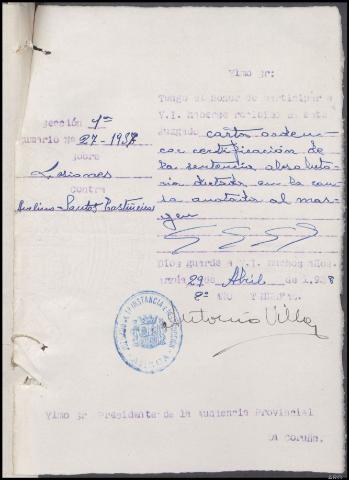 Ylmo Sr:
Tengo el honor de participar a
V.I. haberse recibido en este
Juzgado carta orden
con certificación de
la sentencia absoluto-
ria dictada en la cau-
sa anotada al mar-
gen
Sección 1ª
Sumario Nº 27-1937
sobre
Lesiones
contra
Santos
Dios guarde a V.I. muchos años.
29 de Abril de 1.938
2º AÑO TRIUNFAL.
Antonio Villa
JUZGADO DE 1ª INSTANCIA E INSTRUCCION
Ylmo Sr Presidente de la Audiencia Provincial
La Coruña.